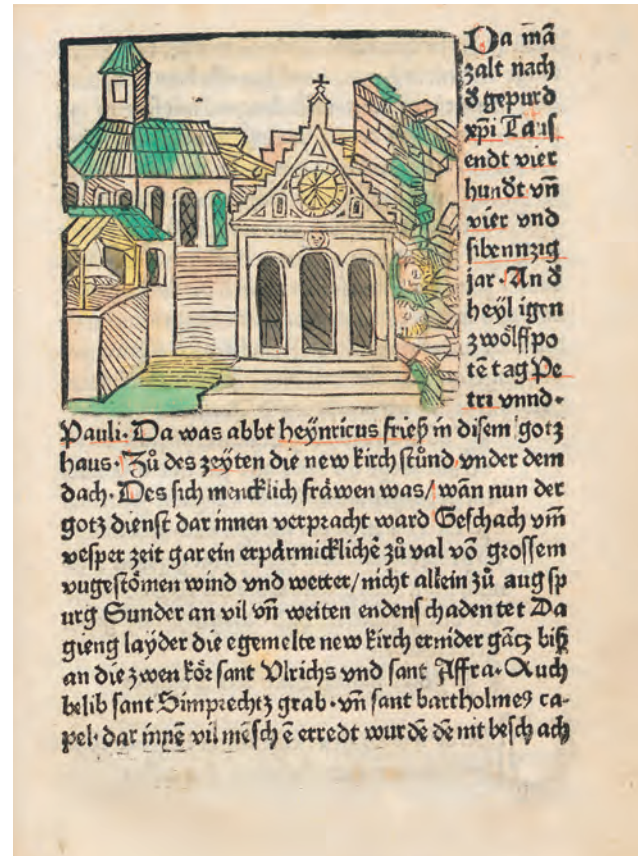 Da mã
zalt nach
d̕ gepurd
xp̃i Tauſ
endt vier
hund̕t vñ
vier vnd
ſibennzig
jar · An d̕
heÿl igen
zwoͤlffpo
tẽ tag Pe
tri vnnd ·
Pauli · Da was abbt heÿnricus frieß in diſem gotz
haus · Zuͦ des zeÿten die new kirch ſtuͦnd vnder dem
dach · Des ſich mencklich fraͤwen was / wãn nun der
gotz dienſt dar innen verpracht ward Geſchach vm̃
veſper zeit gar ein erpaͤrmicklichẽ zuͦ val võ groſſem
vngeſtoͤmen wind vnd wetter / nicht allein zuͦ augſp
urg Sunder an vil vñ weiten endenſ chaden tet Da
gieng laÿder die egemelte new kirch ernider gãcz biß
an die zwen koͤr ſant Vlrichs vnd ſant Affra · Auch
belib ſant Simprechtz grab · vñ ſant bartholmeꝰ ca-
pel · dar innẽ vil mẽſch ẽ erredt wurdẽ dẽ nit beſch ach